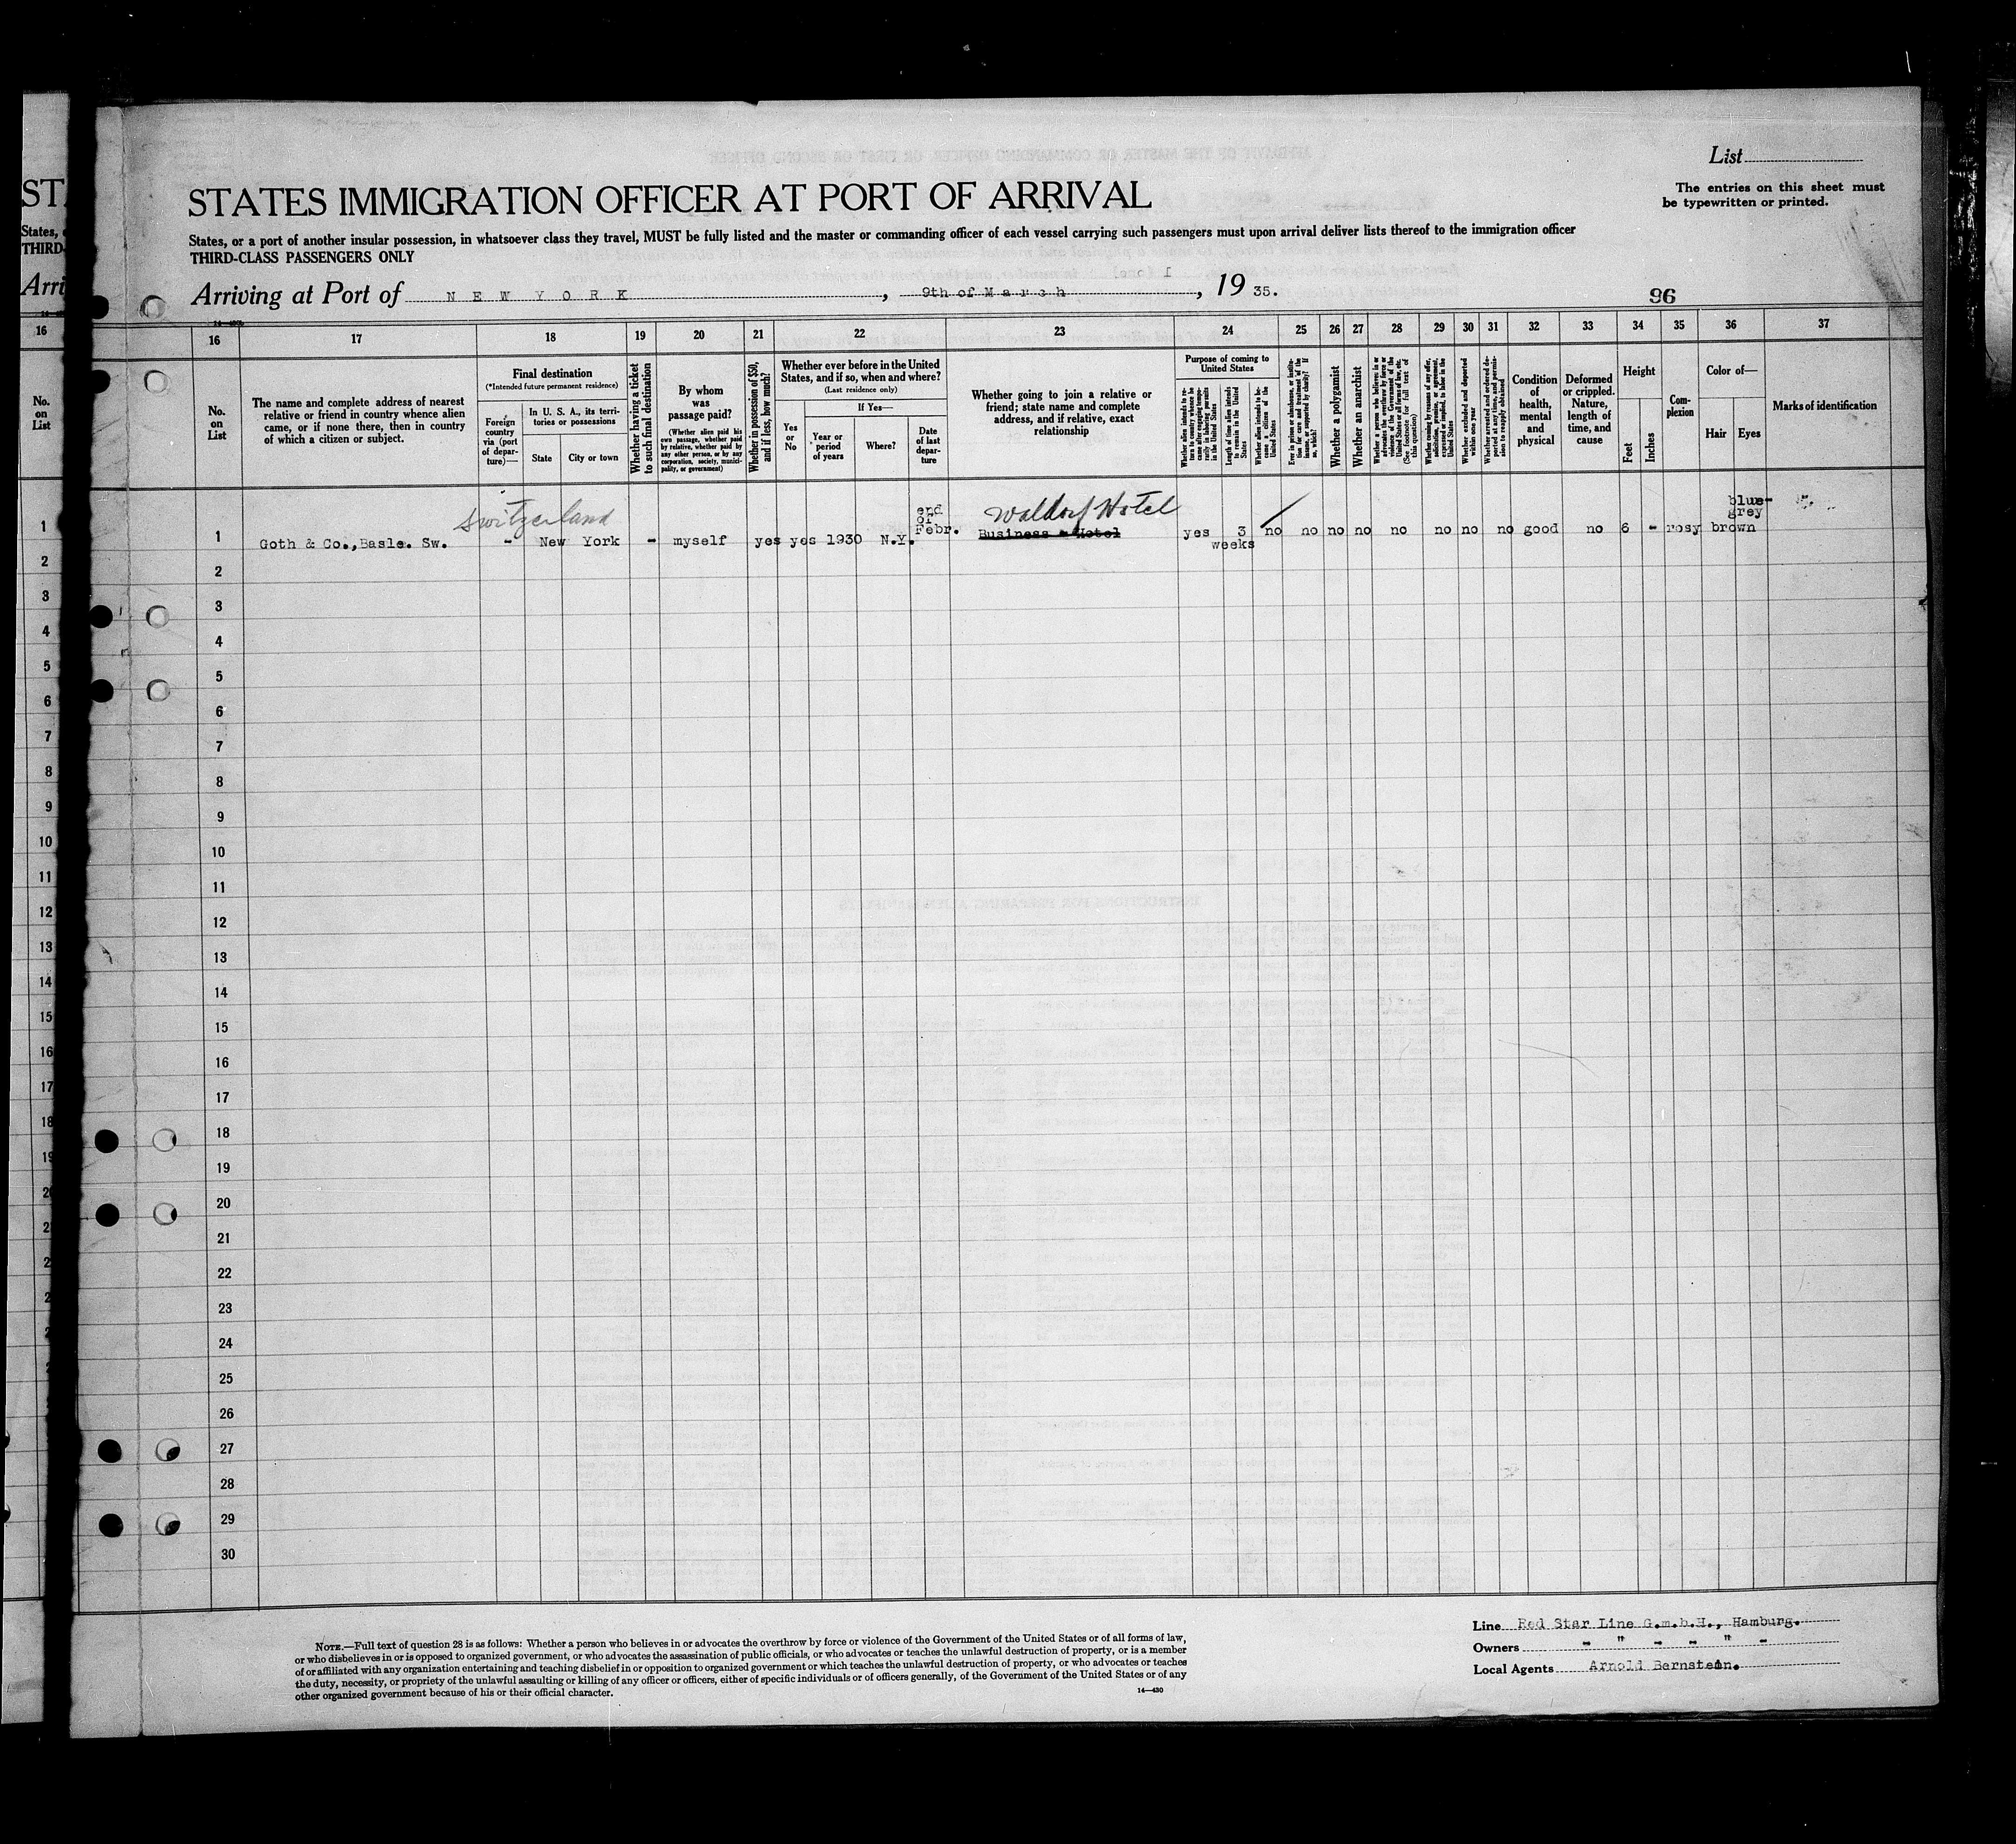 List
The entries on this sheet must
be typewritten or printed.
STATES IMMIGRATION OFFICER AT PORT OF ARRIVAL
States, or a port of another insular possession, in whatsoever class they travel, MUST be fully listed and the master or commanding officer of each vessel carrying such passengers must upon arrival deliver lists thereof to the immigration officer
THIRD-CLASS PASSENGERS ONLY
Arriving at Port of NEW YORK, 9th of March, 1935.
96
16 17 18 19 20 21 22 23 24 25 26 27 28 29 30 31 32 33 34 35 36 37
No. on List
The name and complete address of nearest
relative or friend in country whence alien
came, or if none there, then in country
of which a citizen or subject.
Final destination
(*Intended future permanent residence)
Foreign country via (port of departure)—
In U. S. A., its territories or possessions
State
City or town
Whether having a ticket to such final destination
By whom was passage paid?
(Whether alien paid his own passage, whether paid by relative, whether paid by any other person, or by any corporation, society, municipality, or government)
Whether in possession of $50, and if less, how much?
Whether ever before in the United
States, and if so, when and where?
(Last residence only)
If Yes—
Yes or No
Year or period of years
Where?
Date of last departure
Whether going to join a relative or
friend; state name and complete
address, and if relative, exact
relationship
Purpose of coming to United States
Whether alien intends to return to country whence he came after engaging temporarily in laboring pursuits in the United States
Length of time alien intends to remain in the United States
Whether alien intends to become a citizen of the United States
Ever in prison or almshouse, or institution for care and treatment of the insane, or supported by charity? If so, which?
Whether a polygamist
Whether an anarchist
Whether a person who believes in or advocates the overthrow by force or violence of the Government of the United States or all forms of law, etc. (See footnote for full text of this question)
Whether coming by reason of any offer, solicitation, promise, or agreement, expressed or implied, to labor in the United States
Whether excluded and deported within one year
Whether arrested and ordered deported at any time, and permission to reapply obtained
Condition of health, mental and physical
Deformed or crippled. Nature, length of time, and cause
Height
Feet
Inches
Complexion
Color of—
Hair
Eyes
Marks of identification
Switzerland
end of Febr.
Waldorf Hotel
blue-grey
1 Goth & Co., Basle. Sw. - New York - myself yes yes 1930 N.Y. Business - Hotel yes 3 weeks no no no no no no no no good no 6 - rosy brown
2
3
4
5
6
7
8
9
10
11
12
13
14
15
16
17
18
19
20
21
22
23
24
25
26
27
28
29
30
NOTE.—Full text of question 28 is as follows: Whether a person who believes in or advocates the overthrow by force or violence of the Government of the United States or of all forms of law,
or who disbelieves in or is opposed to organized government, or who advocates the assassination of public officials, or who advocates or teaches the unlawful destruction of property, or is a member
of or affiliated with any organization entertaining and teaching disbelief in or opposition to organized government or which teaches the unlawful destruction of property, or who advocates or teaches
the duty, necessity, or propriety of the unlawful assaulting or killing of any officer or officers, either of specific individuals or of officers generally, of the Government of the United States or of any
other organized government because of his or their official character.
14—430
Line Red Star Line G.m.b.H., Hamburg.
Owners - " - - " -
Local Agents Arnold Bernstein.